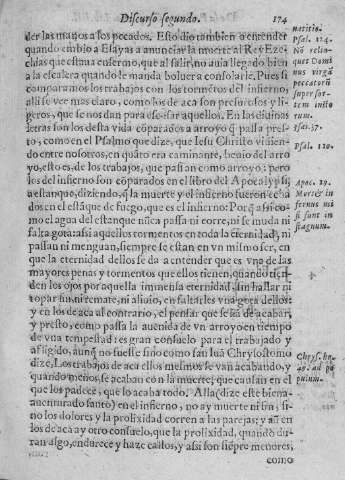 Discurso segundo. 174
der las manos a los pecados. Esto dio tambien a entender
quando embio a Esayas a anunciar la muerte al Rey Eze-
chias que estaua enfermo, que al salir, no auia llegado bien
a la escalera quando le manda boluer a consolarle. Pues si
comparamos los trabajos con los tormẽtos del infierno,
alli se vee mas claro, como los de aca son presurosos y li-
geros, que se nos dan para escusar aquellos. En las diuinas
letras son los desta vida cõparados a arroyo q̃ passa pres-
to, como en el Psalmo que dize, que Iesu Christo vinien-
do entre nosotros, en quãto era caminante, beuio del arro
yo, esto es, de los trabajos, que passan como arroyo: pero
los del infierno son cõparados en el libro del Apocalypsi,
a estanque, diziendo, q̃ la muerte y el infierno fueron echa
dos en el estãque de fuego, que es el infierno: Porq̃ assi co-
mo el agua del estanque nũca passa ni corre, ni se muda ni
falta gota: assi aquellos tormentos en toda la eternidad, ni
passan ni menguan, siempre se estan en vn mismo ser, en
que la eternidad dellos se da a entender que es vna de las
mayores penas y tormentos que ellos tienen, quando tien-
den los ojos por aquella immensa eternidad, sin hallar ni
topar fin, ni remate, ni aliuio, en faltarles vna gota dellos:
y en los de aca al contrario, el pensar que se hã de acabar,
y presto, como passa la auenida de vn arroyo en tiempo
de vna tempestad es gran consuelo para el trabajado y
afligido, aunq̃ no fuesse sino como san Iuã Chrysostomo
dize, Los trabajos de aca ellos mesmos se van acabando, y
quando menos, se acaban con la muerte, que causan en el
que los padece, que lo acaba todo. Alla (dize este biena-
uenturado santo) en el infierno, no ay muerte ni fin, si-
no los dolores y la prolixidad corren a las parejas; y aũ en
los de aca ay otro consuelo, que la prolixidad, quando du-
ran algo, endurece y haze callos, y assi son siẽpre menores,
como
Psal. 124.
No relin-
quet Domi
nus virgã
peccatorũ
super sor-
tem iusto
rum.
Isai. 37.
Psal. 120.
Apoc. 19.
Mors & in
fernus mi
si sunt in
stagnum.
Chrys. ho.